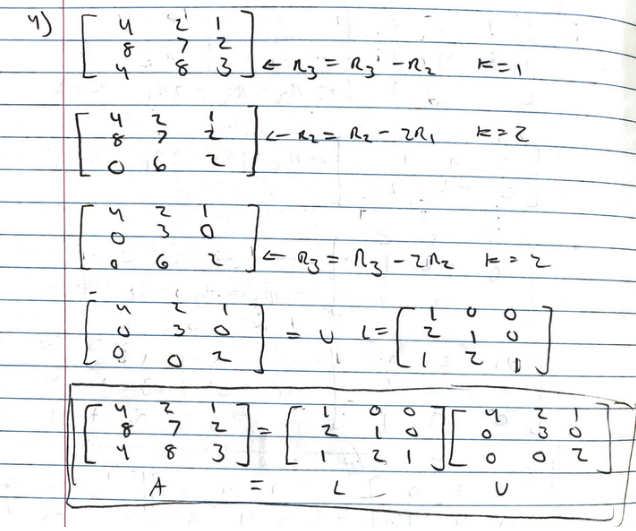 4) [ 4 2 1
8 7 2
4 8 3 ] ← R3 = R3 - R2 k=1
[ 4 2 1
8 7 2
0 6 2 ] ← R2 = R2 - 2R1 k=2
[ 4 2 1
0 3 0
0 6 2 ] ← R3 = R3 - 2R2 k=2
[ 4 2 1
0 3 0
0 0 2 ] = U L = [ 1 0 0
2 1 0
1 2 1 ]
[ 4 2 1
8 7 2
4 8 3 ] = [ 1 0 0
2 1 0
1 2 1 ] [ 4 2 1
0 3 0
0 0 2 ]
A = L U